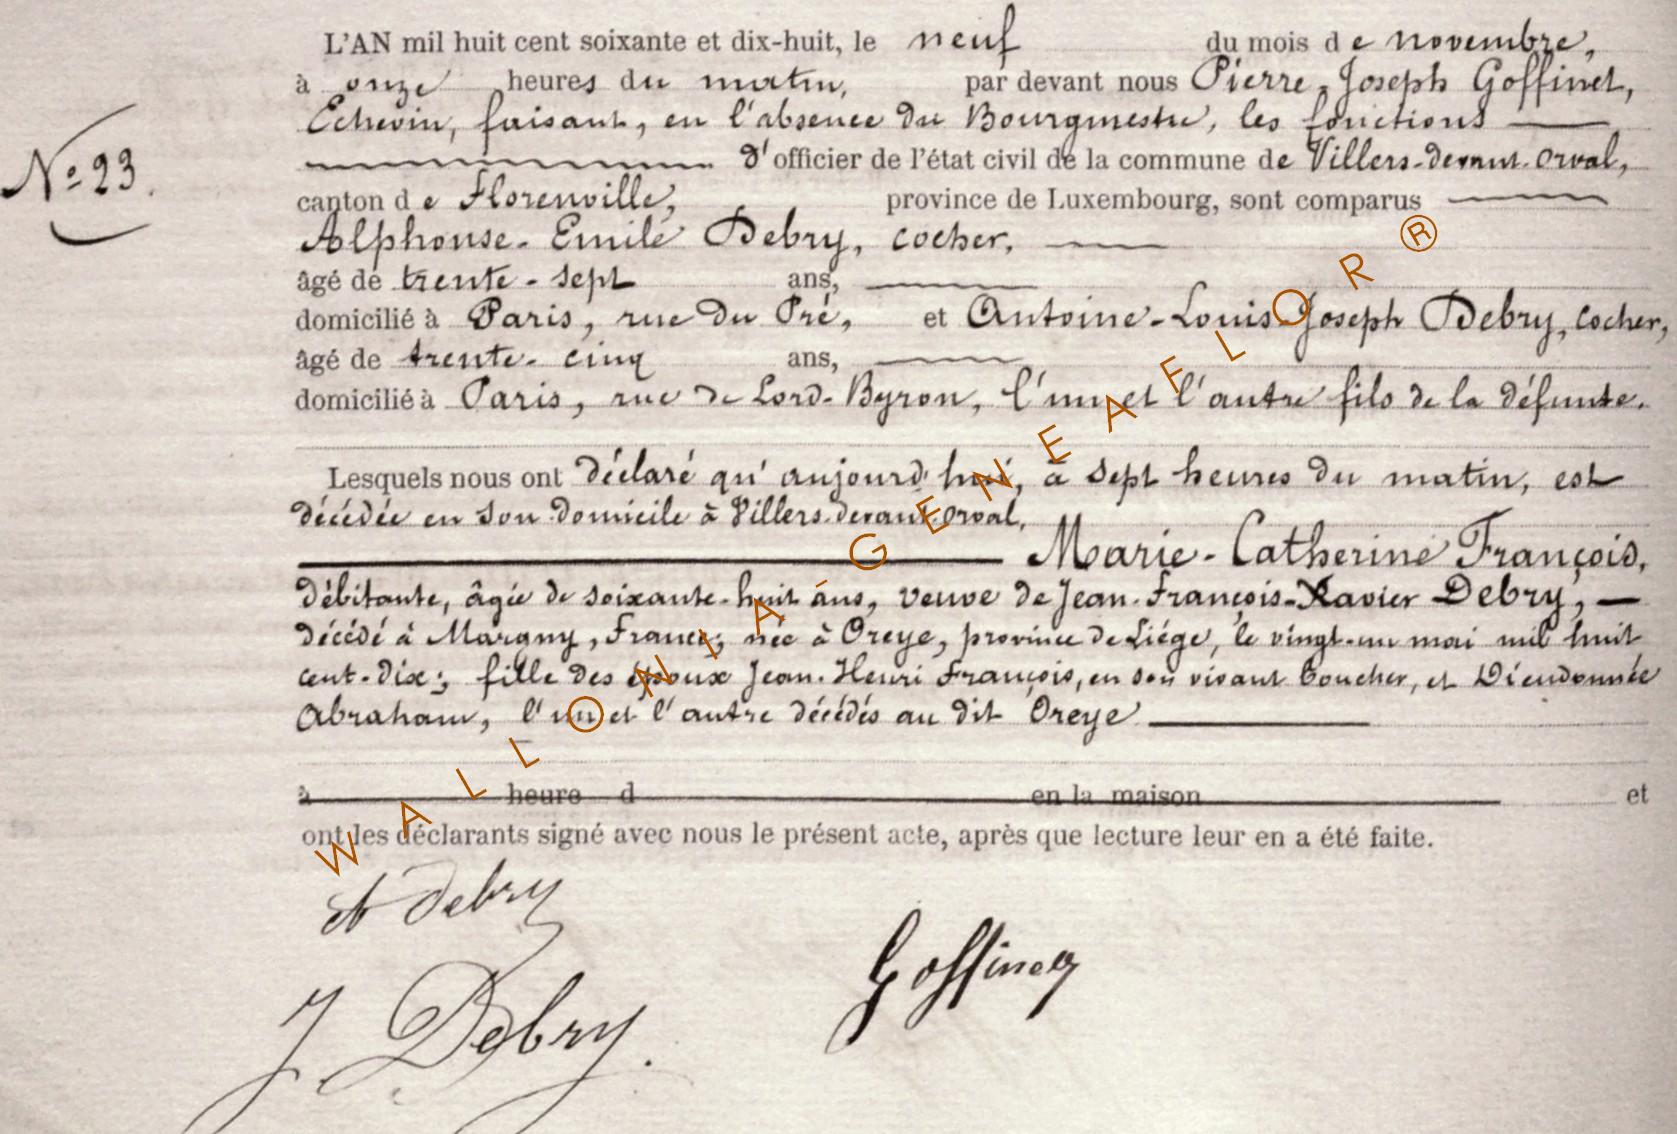 L'AN mil huit cent soixante et dix-huit, le neuf du mois de novembre,
à onze heures du matin, par devant nous Pierre-Joseph Goffinet,
Echevin, faisant, en l'absence du Bourgmestre, les fonctions
N° 23.
d'officier de l'état civil de la commune de Villers-devant-Orval,
canton de Florenville, province de Luxembourg, sont comparus
Alphonse-Emile Debry, cocher,
âgé de trente-sept ans,
domicilié à Paris, rue du Pré, et Antoine-Louis-Joseph Debry, cocher,
âgé de trente-cinq ans,
domicilié à Paris, rue de Lord-Byron, l'un et l'autre fils de la défunte.
Lesquels nous ont déclaré qu'aujourd'hui, à sept heures du matin, est
décédée en son domicile à Villers-devant-Orval,
Marie-Catherine François,
débitante, âgée de soixante-huit ans, veuve de Jean-François-Xavier Debry,
décédé à Margny, France; née à Oreye, province de Liége, le vingt-un mai mil huit
cent-dix; fille des époux Jean-Henri François, en son vivant boucher, et Dieudonnée
Abraham, l'un et l'autre décédés au dit Oreye
à heure d en la maison et
ont les déclarants signé avec nous le présent acte, après que lecture leur en a été faite.
Debry
Goffinet
J. Debry.
WALLONIA GENEAFLOR®